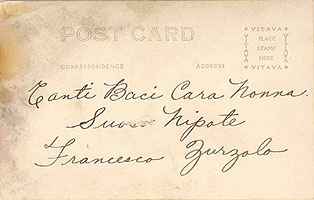 POST CARD
CORRESPONDENCE
ADDRESS
VITAVA
VITAVA
PLACE
STAMP
HERE
VITAVA
VITAVA
Tanti Baci Cara Nonna.
Nipote
Francesco Zurzolo